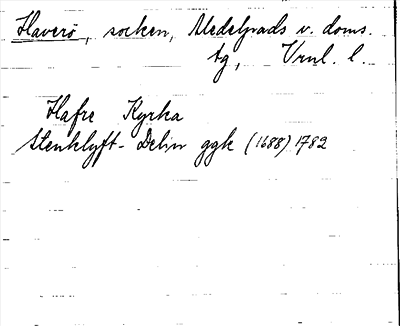 Haverö, socken, Medelpads v. doms.
tg, Vrnl. l.
Hafre Kyrka
Stenklyft-Delin ggk (1688) 1782